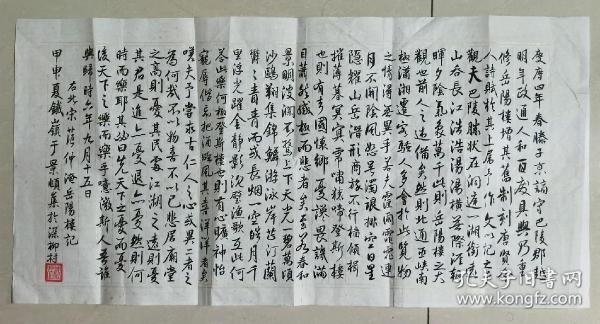 慶曆四年春滕子京謫守巴陵郡越
明年政通人和百廢具興乃重
修岳陽樓增其舊制刻唐賢今
人詩賦於其上屬予作文以記之予
觀夫巴陵勝狀在洞庭一湖銜遠
山吞長江浩浩湯湯橫無際涯朝
暉夕陰氣象萬千此則岳陽樓之大
觀也前人之述備矣然則北通巫峽南
極瀟湘遷客騷人多會於此覽物
之情得無異乎若夫霪雨霏霏連
月不開陰風怒號濁浪排空日星
隱耀山岳潛形商旅不行檣傾楫
摧薄暮冥冥虎嘯猿啼登斯樓
也則有去國懷鄉憂讒畏譏滿
目蕭然感極而悲者矣至若春和
景明波瀾不驚上下天光一碧萬頃
沙鷗翔集錦鱗游泳岸芷汀蘭
鬱鬱青青而或長煙一空皓月千
里浮光躍金靜影沉璧漁歌互
答此樂何極登斯樓也則有心曠神怡
寵辱偕忘把酒臨風其喜洋洋者矣
嗟夫予嘗求古仁人之心或異二者之
為何哉不以物喜不以己悲居廟堂
之高則憂其民處江湖之遠則憂
其君是進亦憂退亦憂然則何
時而樂耶其必曰先天下之憂而憂
後天下之樂而樂乎噫微斯人吾誰
與歸時六年九月十五日
右北宋范仲淹岳陽樓記
甲申夏鐵嶺于景頫集於深柳村
孔夫子旧书网